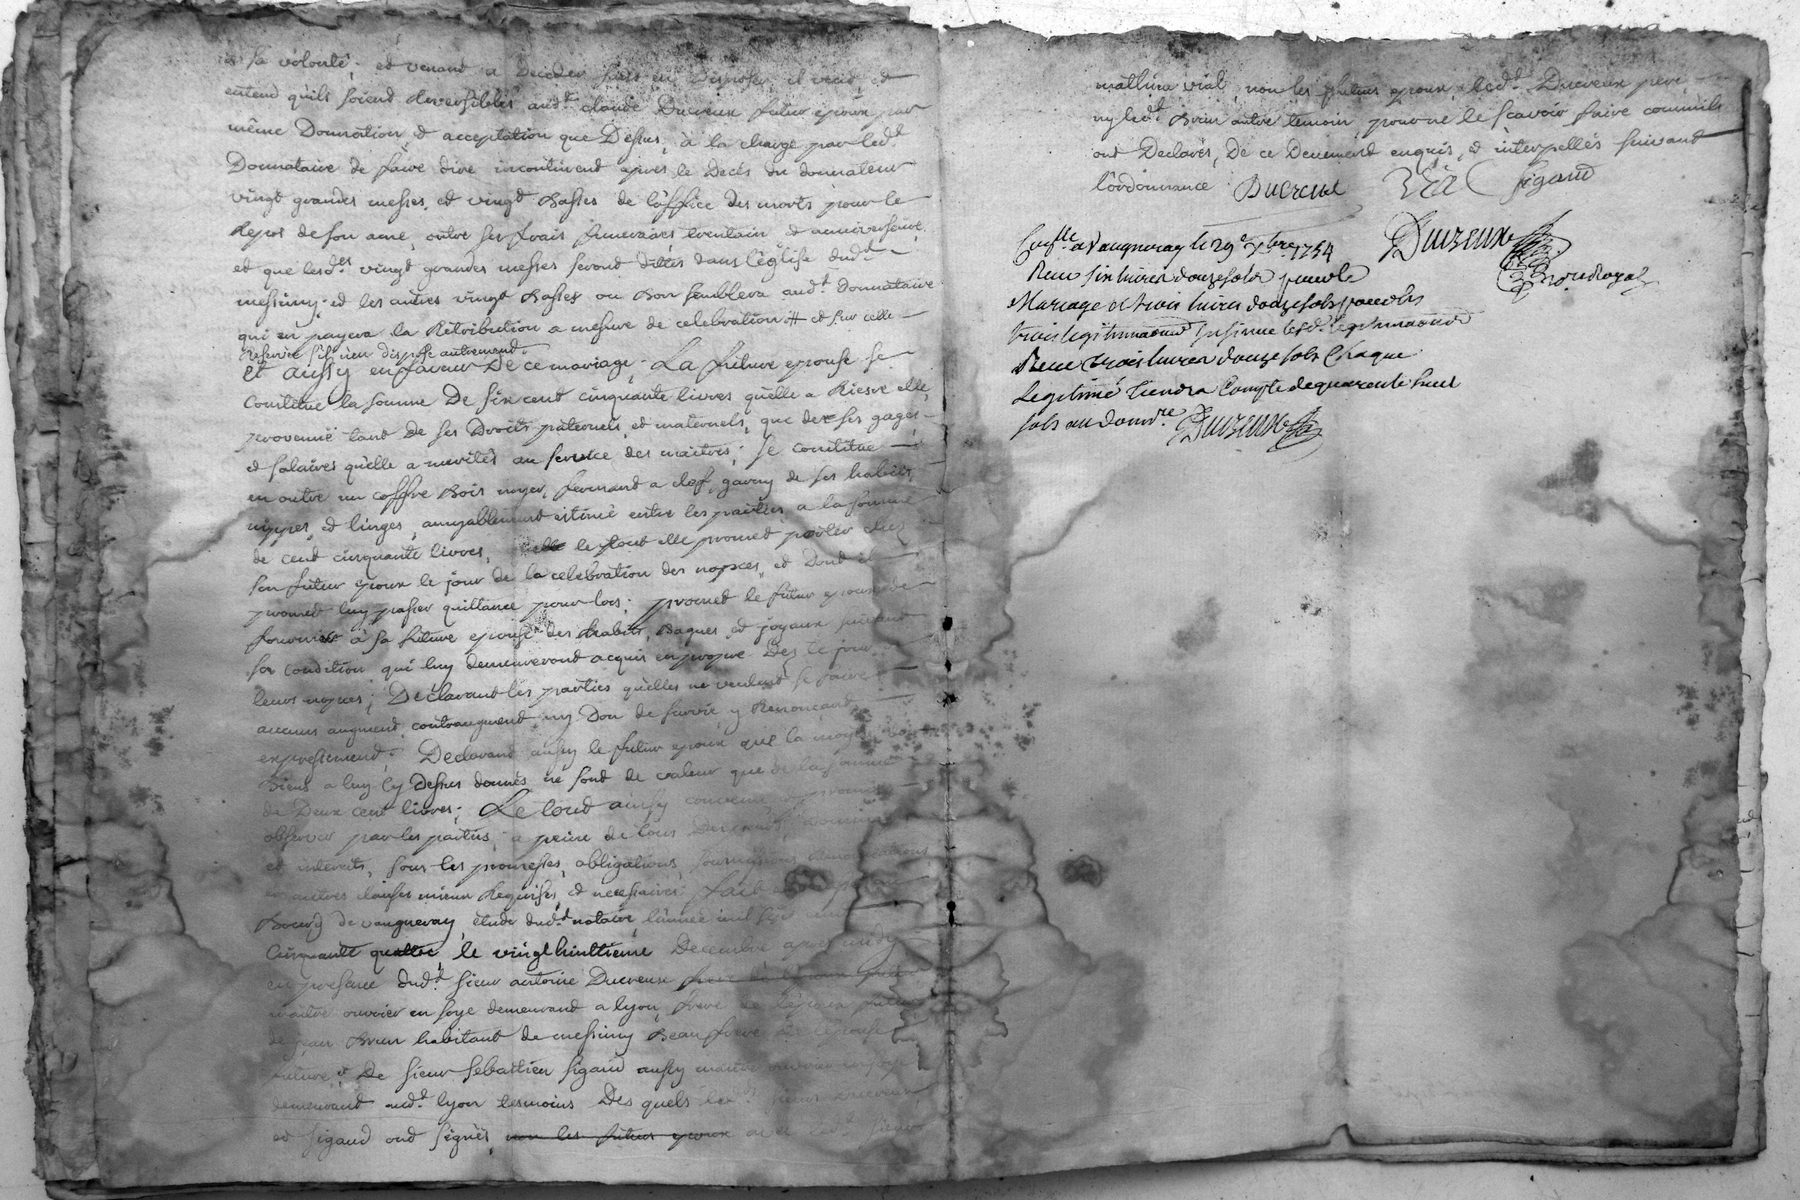 sa volonté, et venant a deceder sans en disposer il veut et
entend qu'ils soient reversibles aud.t claude Ducreux futur epoux par
même Donnation et acceptation que Dessus, à la charge par led.t
Donnataire de faire dire incontinent apres le Decés du donnateur
vingt grandes messes, et vingt Basses de l'office des morts pour le
Repos de son ame, outre ses frais funeraires trentain et anniversaire,
et que lesd.es vingt grandes messes seront dittes dans l'église dud.t
messimy et les autres vingt Basses ou Bon semblera aud.t donnataire
qui en payera la Rétribution a mesure de celebration # et sur celle
reservée s'il n'en dispose autrement
et aussy en faveur De ce mariage, La future epouse se
Constitue la somme De six cent cinquante livres qu'elle a Riesre elle,
provenüe tant de ses Droits paternels, et maternels, que de ses gages,
et salaires qu'elle a merités au service des maitres; se constitue
en outre un coffre Bois noyer, fermant a clef, garny de ses habits,
nippes, et linges, amyablement estimé entre les parties a la somme
de cent cinquante livres, le tout elle promet porter chez
son futur epoux le jour de la celebration des nopces, et Dont il
promet luy passer quittance pour lors; promet le futur epoux de
fournir à sa future epouse des habits, Bagues, et joyaux suivant
sa condition qui luy demeureront acquis en propre Dez le jour
leurs nopces; Declarant les parties qu'elles ne veulent se faire
aucuns augment, contraugment, ny Don de survie, y Renonçant
expressement; Declarant aussy le futur epoux que la moytié des
Biens a luy cy Dessus donnés ne sont de valeur que de la somme
de Deux cent livres; Le tout ainsy convenu
observer par les parties, a peine de tous Despens, dommages
et interets, sous les promesses, obligations, soumissions, renonciations
et autres clauses mieux Requises, et necessaires; fait
Bourg de vaugneray, étude dud.t notaire, l'année mil sept cent
Cinquante quattre, le vingt huittieme Decembre apres midy
en presence dud.t sieur antoine Ducreux
maitre ouvrier en soye demeurant a lyon, frere de l'epoux futur
de jean Brun habitant de messimy Beaufrere de l'epouse
future, et De sieur sebastien sigaud aussy maitre ouvrier en soye
demeurant aud.t lyon temoins Des quels les d.ts sieurs Ducreux
et sigaud ont signés, non les futurs epoux
mathieu vial, non les futurs epoux, led.t Ducreux pere,
ny led.t Brun autre temoin pour ne le scavoir faire comm'ils
ont Declarés, De ce Deuement enquis, et interpellés suivant
l'ordonnance Ducreux Sigaud
Con.lle a Vaugneray le 29.e xbre 1754
Receu six livres douze sols pour le
Mariage et trois livres douze sols pour les
trois legitimaires
Receu trois livres douze sols Chaque
Legitime Tiendra Compte de quarente huit
sols au dom.re